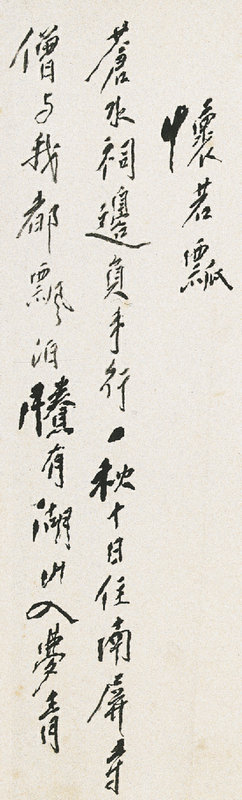 懷若瓢
蒼水祠邊負手行一秋十日住南屏寺
僧与我都飄泊賸有湖山入夢青